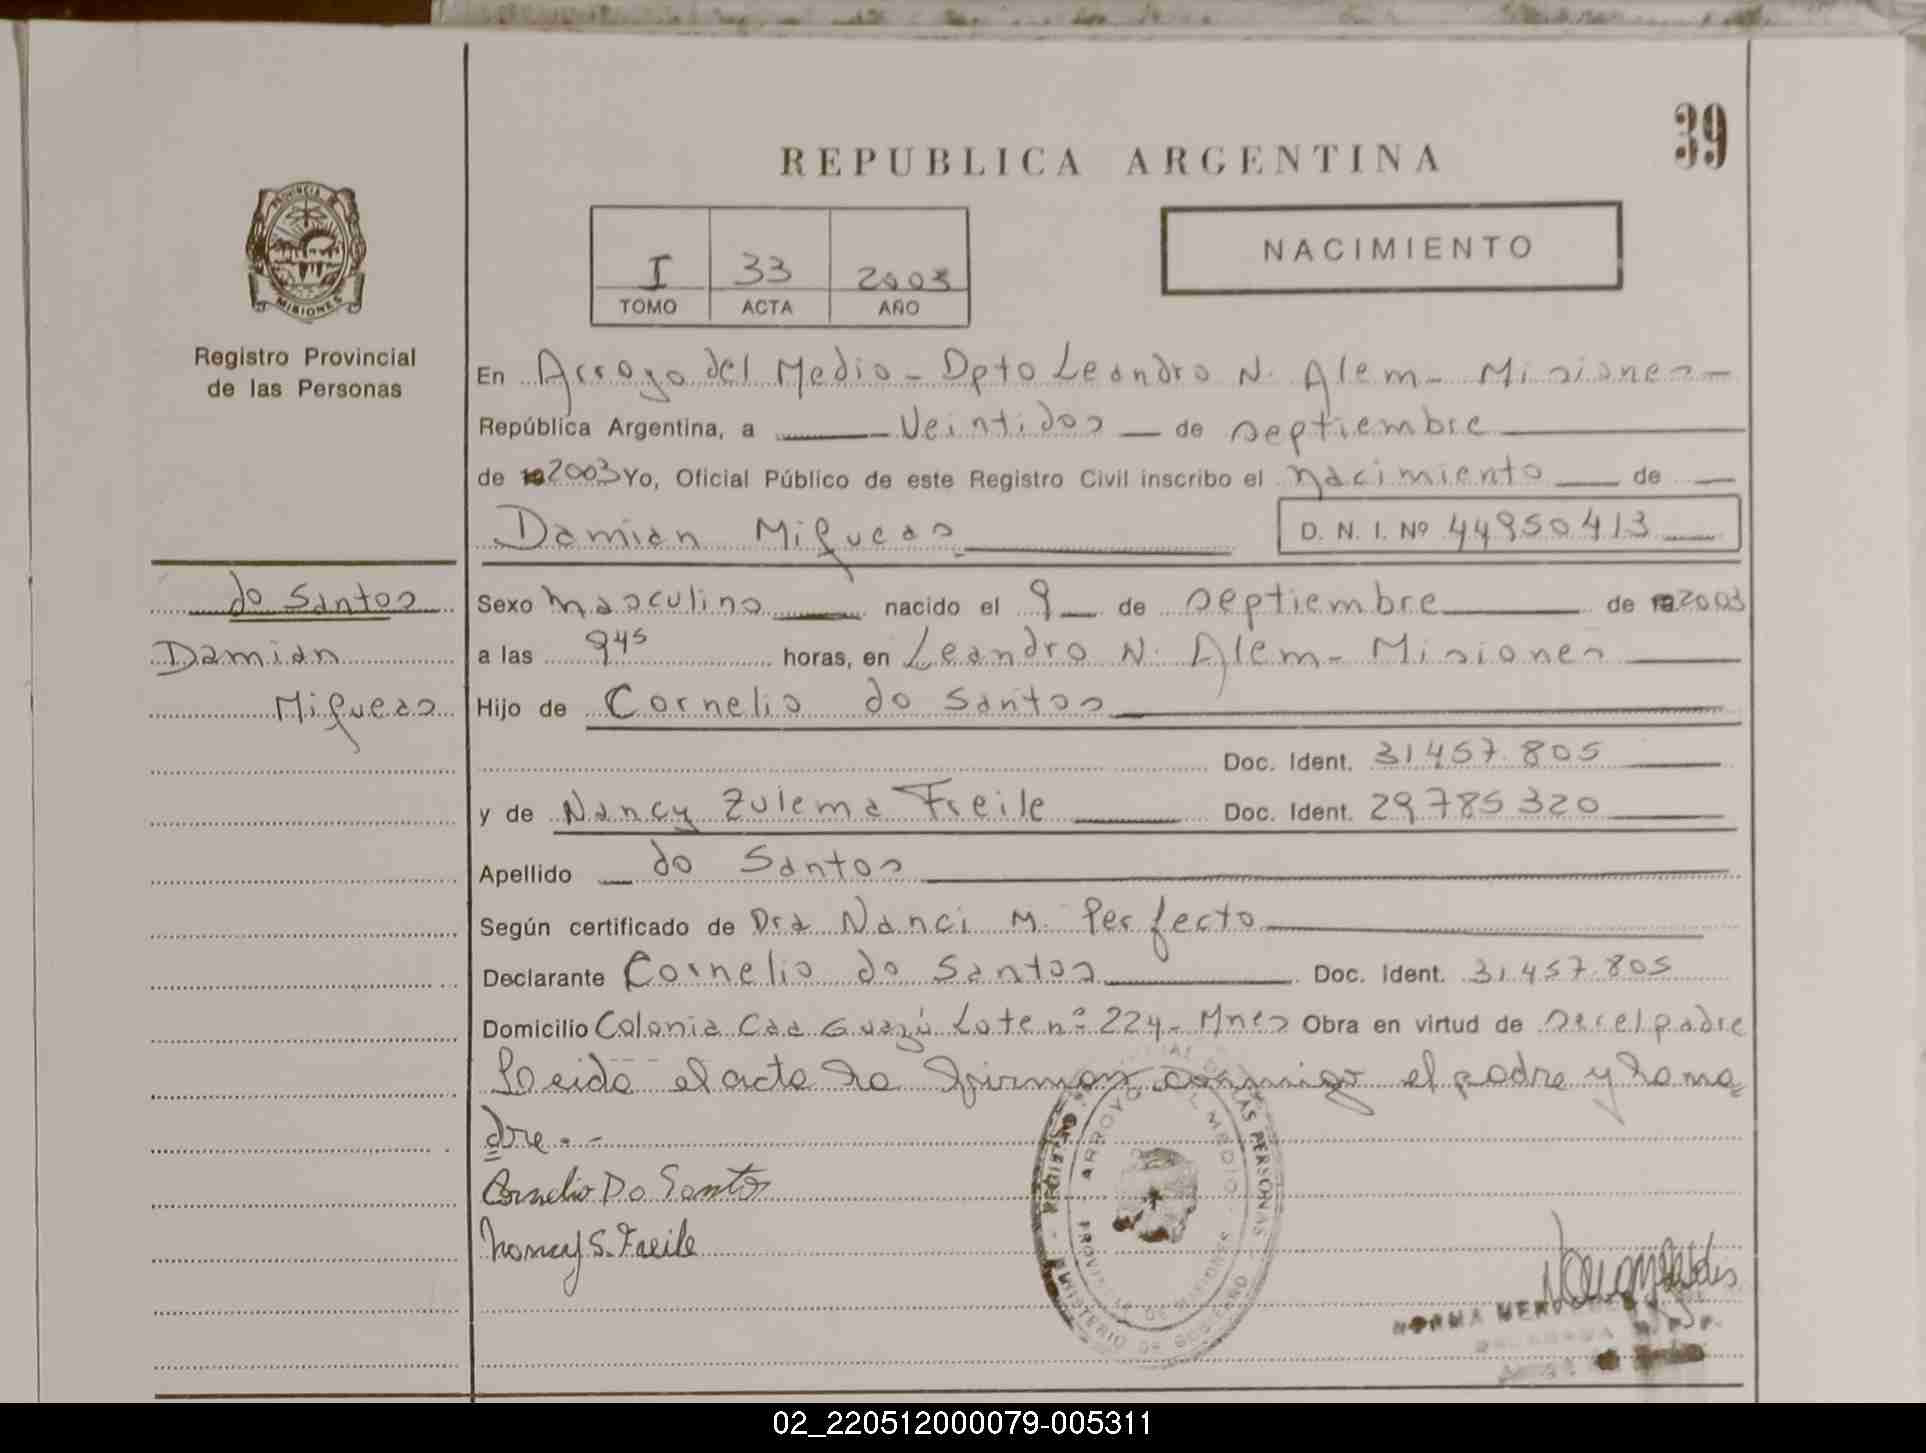 39
REPUBLICA ARGENTINA
PROVINCIA DE
MISIONES
I 33 2003
TOMO ACTA AÑO
NACIMIENTO
Registro Provincial
de las Personas
En Arroyo del Medio - Dpto Leandro N. Alem - Misiones -
República Argentina, a Veintidos de septiembre
de 2003 Yo, Oficial Público de este Registro Civil inscribo el nacimiento de
Damian Miqueas D. N. I. Nº 44950413
do Santos
Damian
Miqueas
Sexo masculino nacido el 9 de septiembre de 2003
a las 9 45 horas, en Leandro N. Alem - Misiones
Hijo de Cornelio do Santos
Doc. Ident. 31457.805
y de Nancy Zulema Freile Doc. Ident. 29785320
Apellido do Santos
Según certificado de Dra Nanci M. Perfecto
Declarante Cornelio do Santos Doc. Ident. 31457.805
Domicilio Colonia Caa Guazú Lote nº 224 - Mnes Obra en virtud de ser el padre
Leida el acta la firman conmigo el padre y la ma=
dre. -
Cornelio Do Santos
Nancy S. Freile
REGISTRO DE LAS PERSONAS
ARROYO DEL MEDIO
PROVINCIA DE MISIONES
MINISTERIO DE GOBIERNO
NORMA
02_220512000079-005311